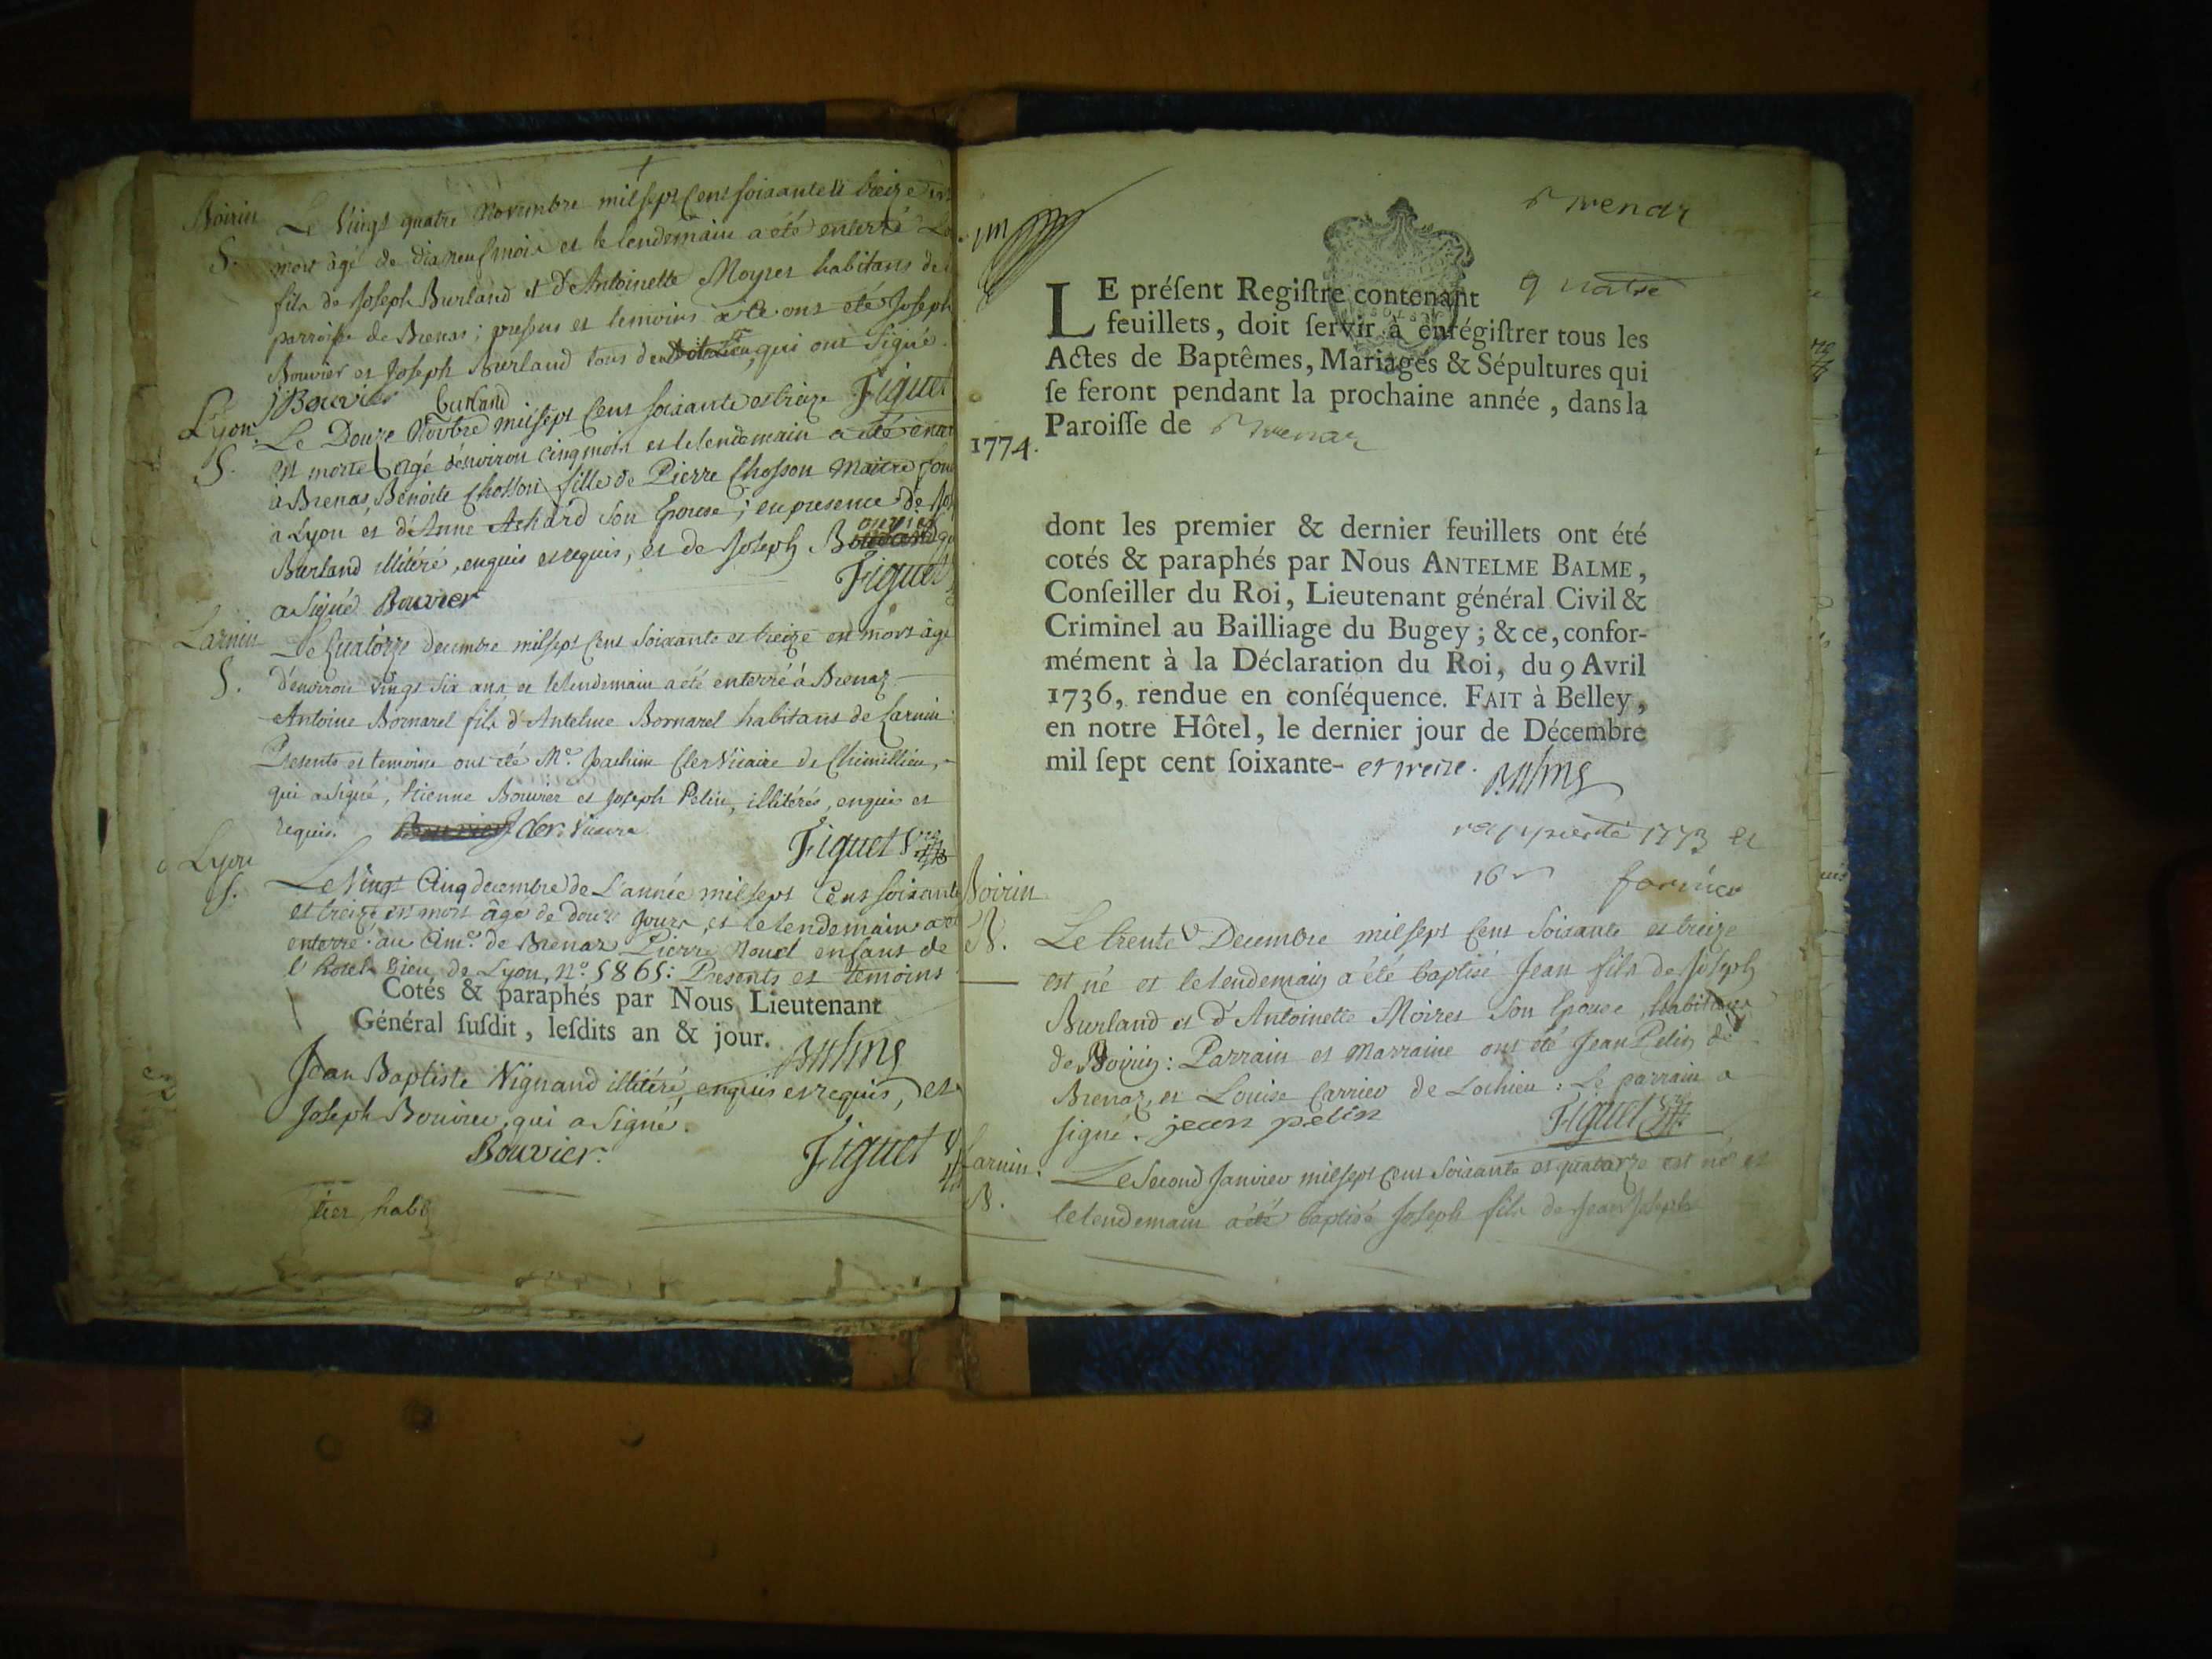 Boirin
S.
Le Vingt quatre Novembre mil sept cent soixante et treize est
mort âgé de dix neuf mois et le lendemain a été enterré
fils de Joseph Burland et d'Antoinette Moyret habitans de
parroisse de Brenas; presens et temoins à ce ont été Joseph
Bouvier et Joseph Burland tous deux qui ont signé.
jBouvier burland Figuet
Lyon
S.
Le Douze Novbre mil sept cent soixante et treize
est morte agé d'environ cinq mois et le lendemain a été
à Brenas, Benoite Chosson fille de Pierre Chosson Maitre
à Lyon et d'Anne Achard son Epouse; en presence de
Burland illitéré, enquis et requis, et de Joseph Bouvier
a signé Bouvier Figuet
Larnin
S.
Le Quatorze decembre mil sept cent soixante et treize est mort âgé
d'environ vingt six ans et le lendemain a été enterré à Brenaz
Antoine Bornarel fils d'Antelme Bornarel habitans de Larnin
Presents et temoins ont été Me. Joachim Cler Vicaire de Chimillieu,
qui a signé, Etienne Bouvier et Joseph Pelin, illitérés, enquis et
requis. Cler. Vicaire Figuet
Lyon
S.
Le Vingt Cinq decembre de L'année mil sept cent soixante
et treize est mort âgé de douze jours, et le lendemain a été
enterré au Cime. de Brenaz Pierre Nouel enfant de
l'hotel Dieu de Lyon, N°. 5865: Presents et temoins
Cotés & paraphés par Nous Lieutenant
Général ſuſdit, leſdits an & jour.
Balme
Jean Baptiste Vignand illitéré, enquis et requis, et
Joseph Bouvier, qui a signé.
Bouvier. Figuet
tier, habi
Brenaz
LE préſent Regiſtre contenant quatre
feuillets, doit ſervir à enrégiſtrer tous les
Actes de Baptêmes, Mariages & Sépultures qui
ſe feront pendant la prochaine année, dans la
Paroiſſe de Brenaz
1774.
dont les premier & dernier feuillets ont été
cotés & paraphés par Nous ANTELME BALME,
Conſeiller du Roi, Lieutenant général Civil &
Criminel au Bailliage du Bugey; & ce, confor-
mément à la Déclaration du Roi, du 9 Avril
1736, rendue en conſéquence. FAIT à Belley,
en notre Hôtel, le dernier jour de Décembre
mil ſept cent ſoixante- et treize. Balme
1773 et
Boirin
N.
Le trente Decembre mil sept cent soixante et treize
est né et le lendemain a été baptisé Jean fils de Joseph
Burland et d'Antoinette Moiret son Epouse, habitans
de Boirin: Parrain et Marraine ont été Jean Pelin de
Brenaz, et Louise Carrier de Lochieu: Le parrain a
signé. jean pelin Figuet
Larnin:
N.
Le second Janvier mil sept cent soixante et quatorze est né et
le lendemain a été baptisé Joseph fils de Jean Joseph